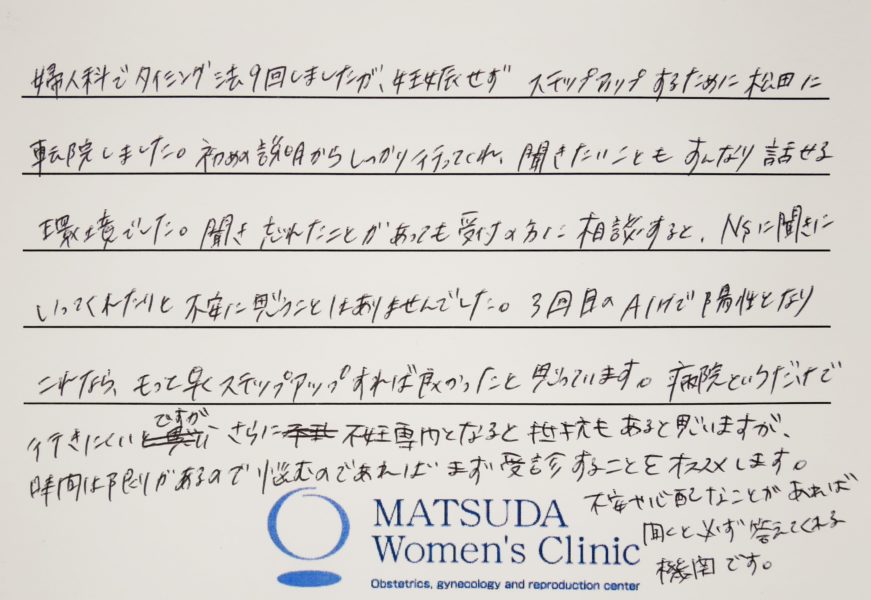 婦人科でタイミング法9回しましたが、妊娠せず ステップアップするために松田に
転院しました。初めの説明からしっかり行ってくれ、聞きたいことも すんなり話せる
環境でした。聞き忘れたことがあっても受付の方に相談すると、NSに聞きに
いってくれたりと不安に思うことはありませんでした。3回目のAIHで陽性となり
これなら、もっと早くステップアップすれば良かったと思っています。病院というだけで
行きにくいですが さらに 不妊専門となると抵抗もあると思いますが、
時間は限りがあるので悩むのであれば まず受診することをオススメします。
不安や心配なことがあれば
聞くと必ず答えてくれる
機関です。
MATSUDA
Women's Clinic
Obstetrics, gynecology and reproduction center